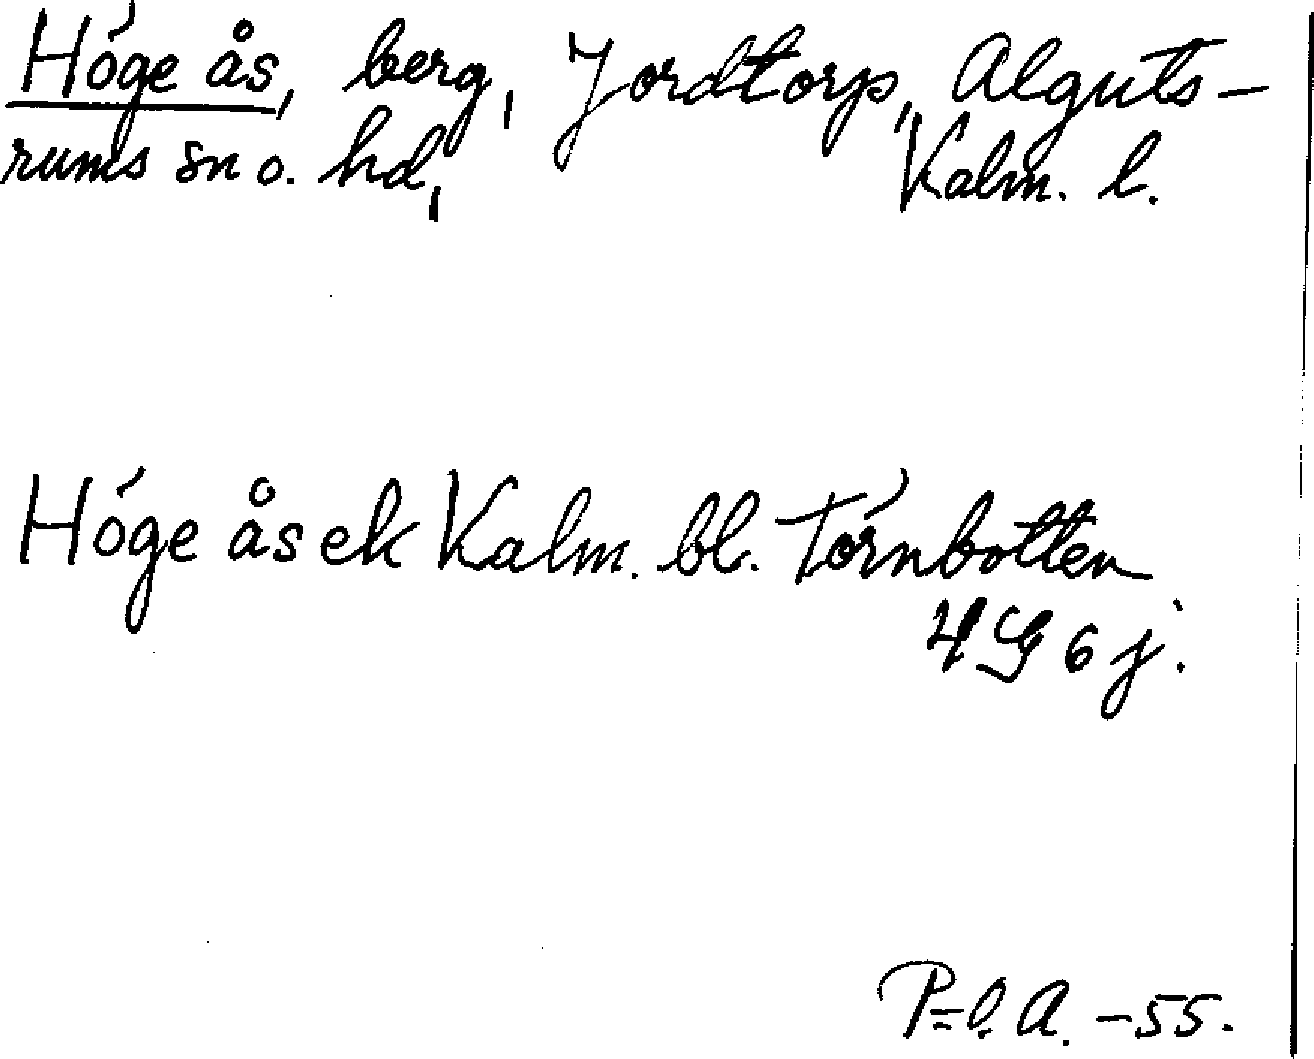 Hóge ås, berg, Jordtorp, Alguts-
rums sn o. hd, Kalm. l.
Hóge ås ek Kalm. bl. Tórnbotten
4G 6 j.
P=l. A. -55.